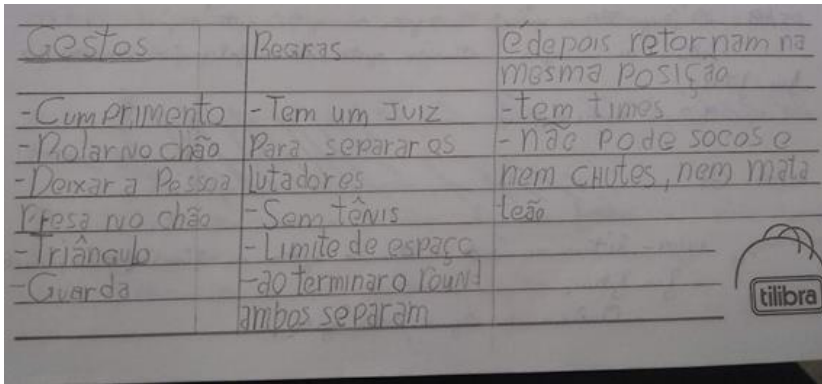 Gestos
-Cumprimento
-Rolar no chão
-Deixar a Pessoa
Presa no chão
-Triângulo
-Guarda
Regras
-Tem um Juiz
Para separar os
lutadores
-Sem tênis
-Limite de espaço
-ao terminar o round
ambos separam
e depois retornam na
mesma posição
-tem times
-não pode socos e
nem chutes, nem mata
leão
tilibra